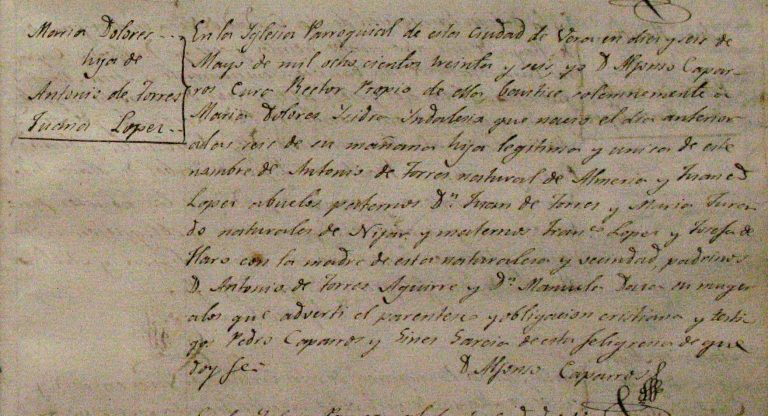 Maria Dolores
hija de
Antonio de Torres
Juana Lopez
En la Iglesia Parroquial de esta Ciudad de Vera en dies y seis de
Mayo de mil ocho cientos treinta y seis, yo D. Alfonso Capar-
ros Cura Rector Propio de ella bautice solemnemente a
Maria Dolores Isidra Indalesia que nacio el dia anterior
a las seis de su mañana hija legitima y unica de este
nombre de Antonio de Torres natural de Almeria y Juana
Lopez abuelos paternos Dn. Juan de Torres y Maria Jura-
do naturales de Nijar y maternos Franco Lopez y Josefa de
Haro con la madre de esta naturalesa y vecindad, padrinos
D. Antonio de Torres Aguirre y Da. Manuela su muger
a los que adverti el parentesco y obligacion cristiana y testi-
gos Pedro Caparros y Gines Garcia de esta feligresia de que
doy fe=
D. Alfonso Caparros